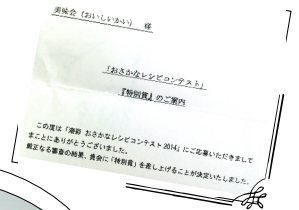 美味会（おいしいかい）　様
「おさかなレシピコンテスト」
『特別賞』のご案内
この度は「南薩 おさかなレシピコンテスト2014」にご応募いただきまして
まことにありがとうございました。
厳正なる審査の結果、貴会に「特別賞」を差し上げることが決定いたしました。